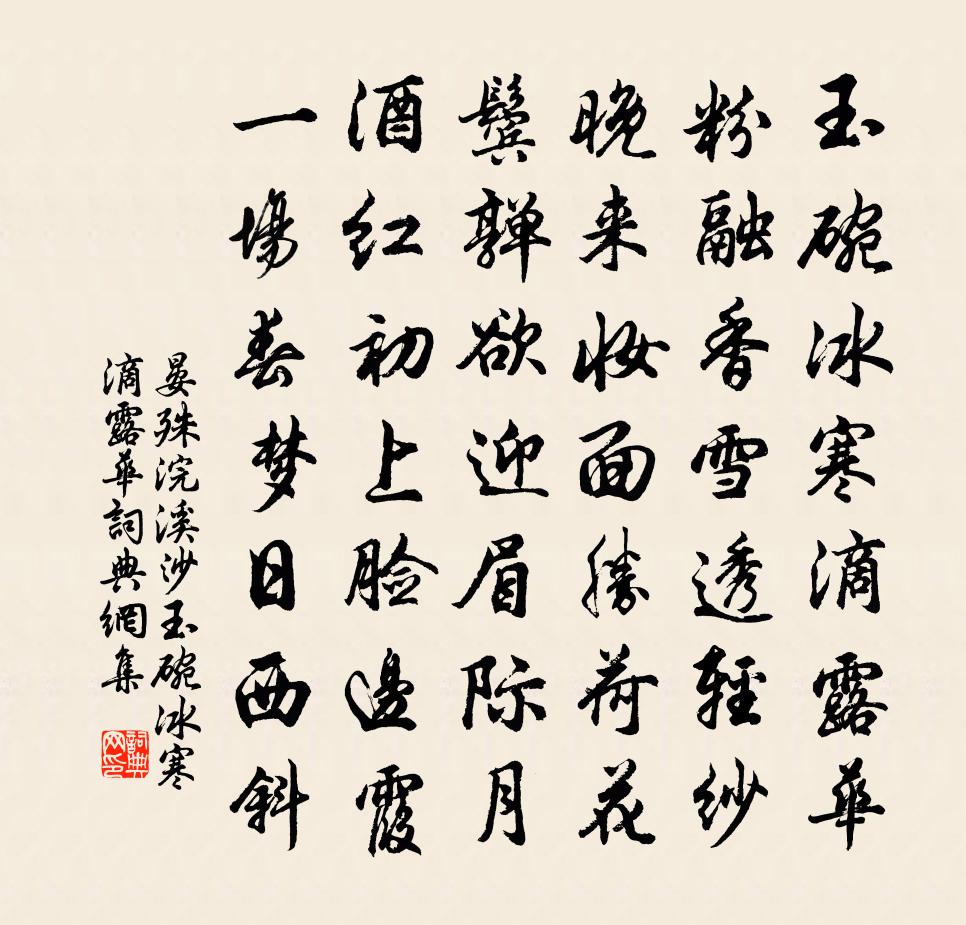 玉碗冰寒滴露華
粉融香雪透輕紗
晚来妝面勝荷花
鬓嚲欲迎眉际月
酒红初上脸邊霞
一場春梦日西斜
晏殊浣溪沙玉碗冰寒
滴露華詞典網集
詞典网印